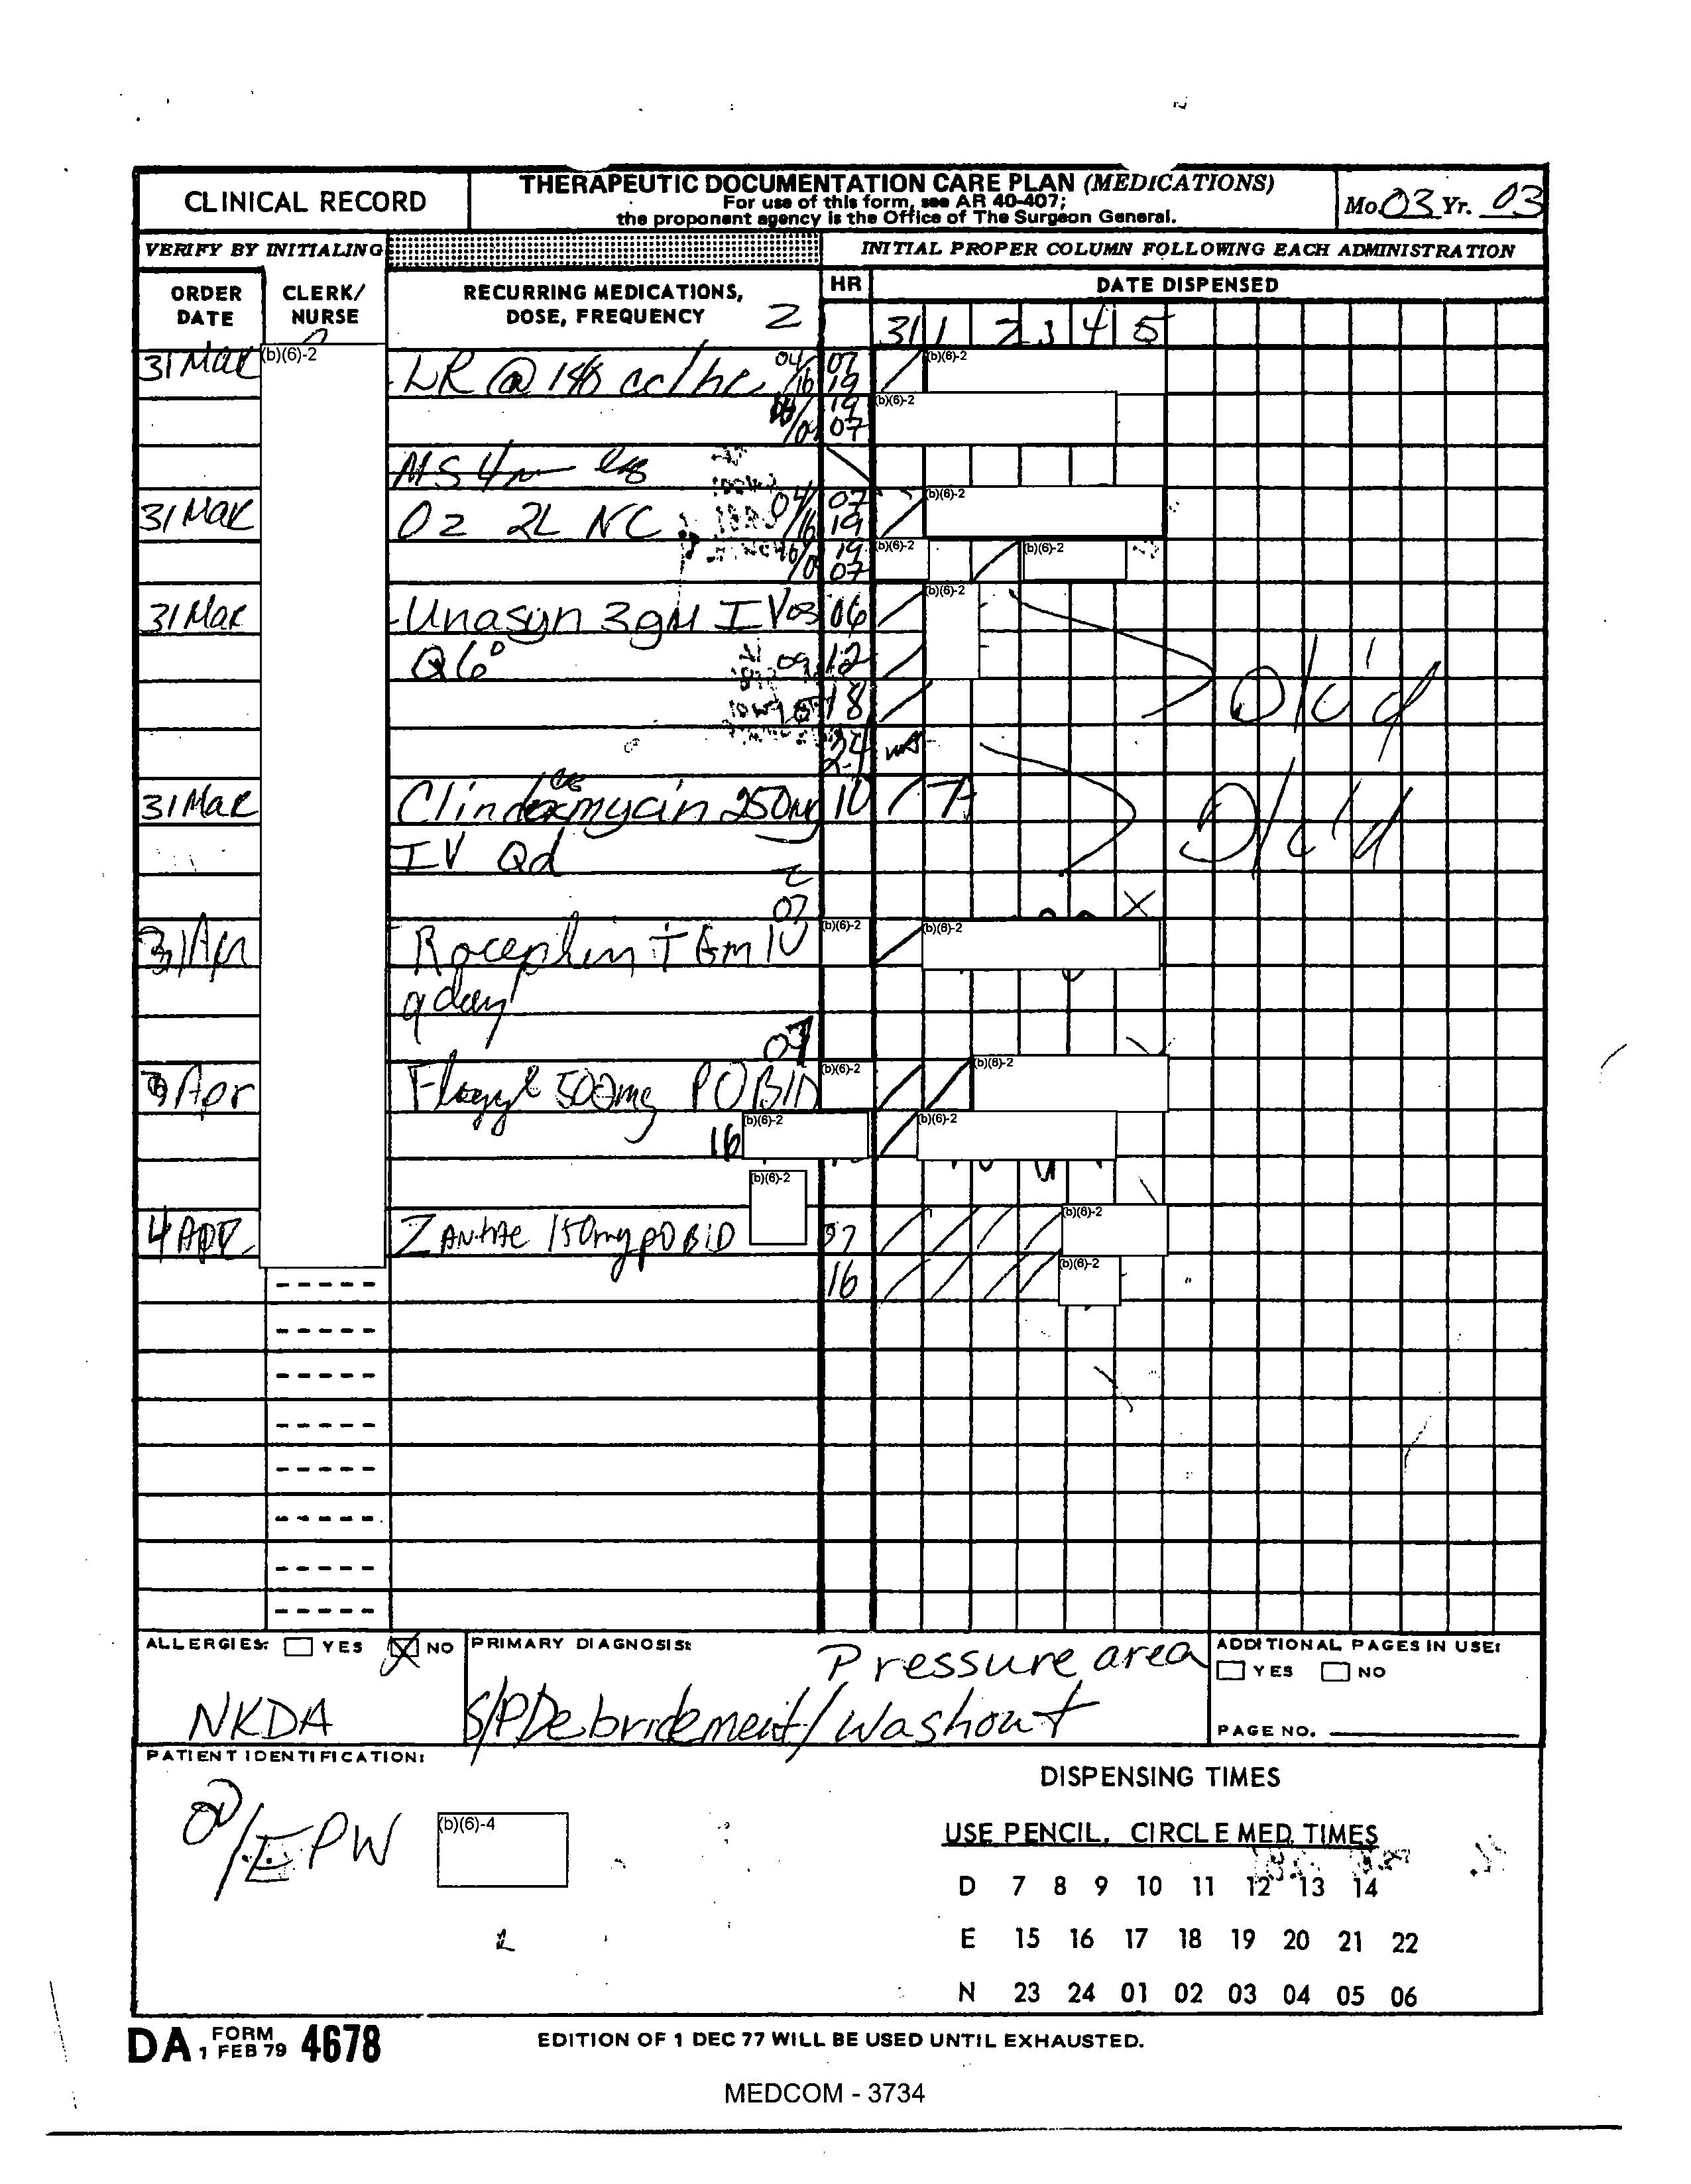 CLINICAL RECORD
THERAPEUTIC DOCUMENTATION CARE PLAN (MEDICATIONS)
For use of this form, see AR 40-407;
the proponent agency is the Office of The Surgeon General.
Mo. 03 Yr. 03
VERIFY BY INITIALING
INITIAL PROPER COLUMN FOLLOWING EACH ADMINISTRATION
ORDER DATE
CLERK/ NURSE
RECURRING MEDICATIONS, DOSE, FREQUENCY
2
HR
DATE DISPENSED
31 1 2 3 4 5
31 Mar (b)(6)-2 LR @ cc/hr 04/16 07 19 (b)(6)-2
19 07 (b)(6)-2
MS
31 Mar O2 2L NC 04/16 07 19 (b)(6)-2
19 07 (b)(6)-2 (b)(6)-2
31 Mar Unasyn 3gm IV 03 06 (b)(6)-2
Q6° 09 12 D/c'd
18
24
31 Mar Clindamycin 250mg 10 D/c'd
IV Qd
07
Apr Rocephin T Gm IV (b)(6)-2 (b)(6)-2
q day
07
Apr Flagyl 500mg PO BID (b)(6)-2 (b)(6)-2
16 (b)(6)-2 (b)(6)-2
(b)(6)-2
4 APR Zantac 150mg PO BID 07 (b)(6)-2
16 (b)(6)-2
ALLERGIES: YES NO
NKDA
PRIMARY DIAGNOSIS:
Pressure area
S/P Debridement/Washout
ADDITIONAL PAGES IN USE:
YES NO
PAGE NO.
PATIENT IDENTIFICATION:
/EPW (b)(6)-4
DISPENSING TIMES
USE PENCIL. CIRCLE MED. TIMES
D 7 8 9 10 11 12 13 14
E 15 16 17 18 19 20 21 22
N 23 24 01 02 03 04 05 06
DA FORM 1 FEB 79 4678
EDITION OF 1 DEC 77 WILL BE USED UNTIL EXHAUSTED.
MEDCOM - 3734